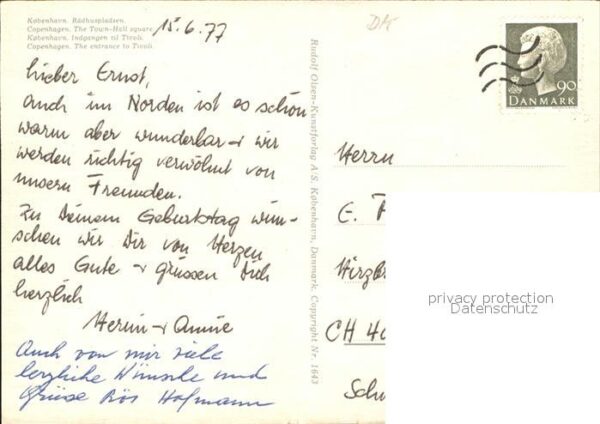 København. Rådhuspladsen.
Copenhagen. The Town-Hall square.
København. Indgangen til Tivoli.
Copenhagen. The entrance to Tivoli.
15.6.77
DK
Lieber Ernst,
auch im Norden ist es schön
warm aber wunderbar + wir
werden richtig verwöhnt von
unsern Freunden.
Zu Deinem Geburtstag wün-
schen wir Dir von Herzen
alles Gute + grüssen Dich
herzlich
+ Annie
Auch von mir viele
herzliche Wünsche und
Grüsse Hofmann
Rudolf Olsen-Kunstforlag A/S. København, Danmark. Copyright Nr. 1643
90
DANMARK
Herrn
E.
CH
privacy protection
Datenschutz